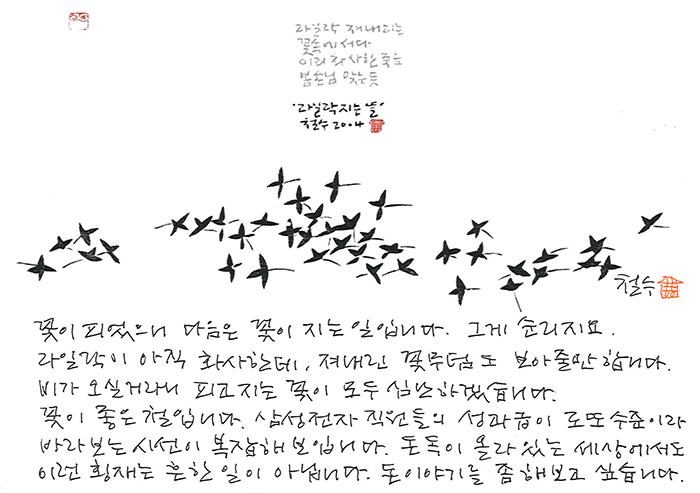 라일락 져내리는
꽃속에 서다
이리 화사한 죽음
봄손님 맞는 듯
'라일락 지는 뜰'
철수 2004
철수
꽃이 피었으니 다음은 꽃이 지는 일입니다. 그게 순리지요.
라일락이 아직 화사한데, 져내린 꽃무덤도 보아줄만 합니다.
비가 오실거라니 피고지는 꽃이 모두 심난하겠습니다.
꽃이 좋은 철입니다. 삼성전자 직원들의 성과급이 로또 수준이라
바라보는 시선이 복잡해 보입니다. 돈독이 올라 있는 세상에서도
이런 횡재는 흔한 일이 아닙니다. 돈이야기를 좀 해보고 싶습니다.